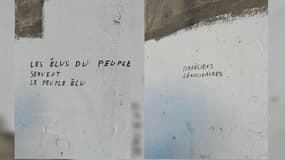 LES ÉLUS DU PEUPLE
SERVENT
LE PEUPLE ÉLU
ISRAÉLIENS
GÉNOCIDAIRES